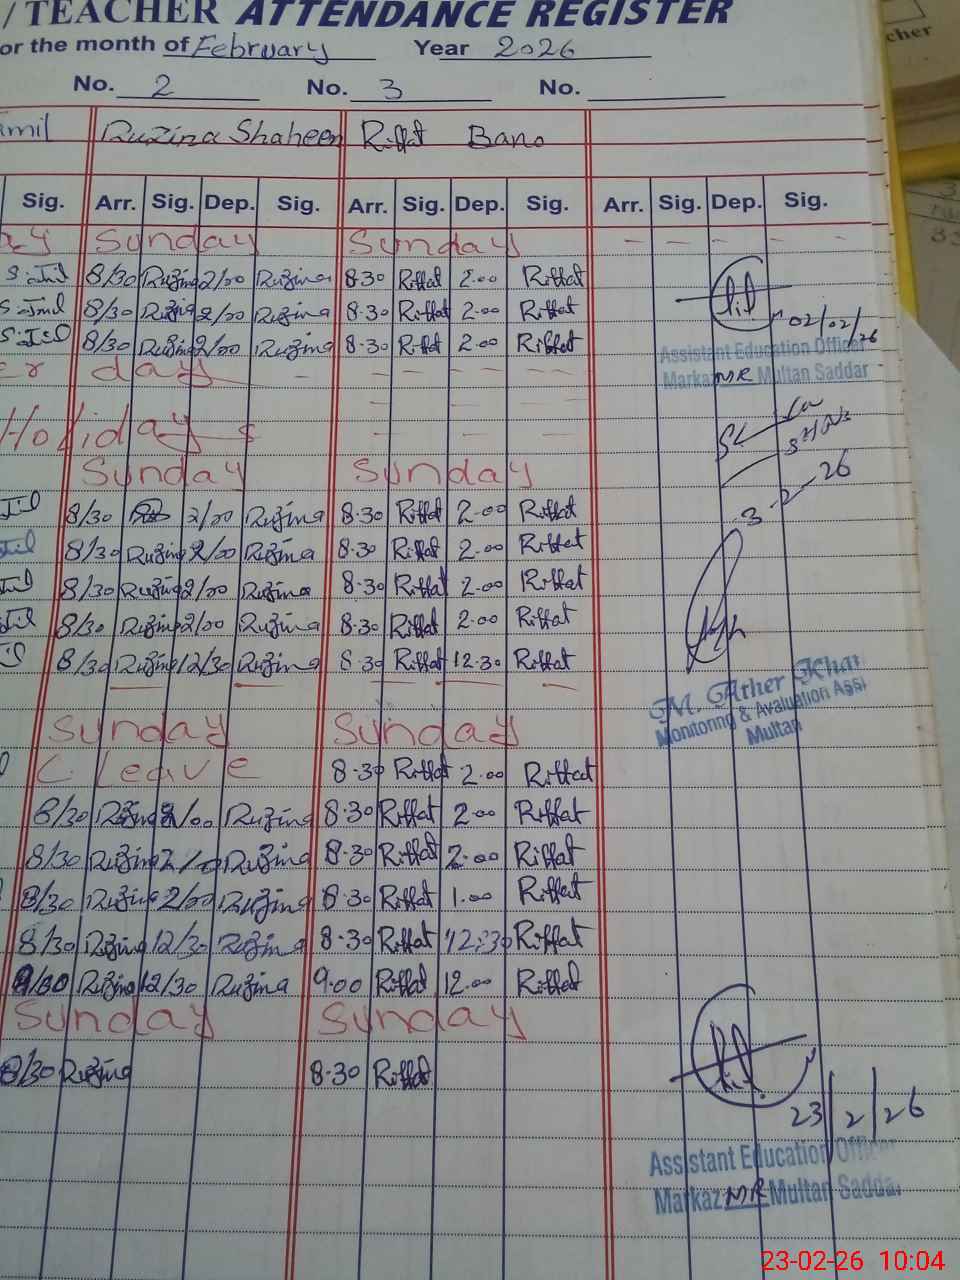 / TEACHER ATTENDANCE REGISTER
or the month of February Year 2026
cher
No. 2 No. 3 No.
Ruzina Shaheen Riffat Bano
Sig. Arr. Sig. Dep. Sig. Arr. Sig. Dep. Sig. Arr. Sig. Dep. Sig.
ay Sunday Sunday - - - - -
8/30 Ruzina 2/00 Ruzina 8.30 Riffat 2.00 Riffat
8/30 Ruzina 2/00 Ruzina 8.30 Riffat 2.00 Riffat
02/02/26
8/30 Ruzina 2/00 Ruzina 8.30 Riffat 2.00 Riffat
Assistant Education Officer
Markaz MR Multan Saddar
er day
Holiday s
Sunday Sunday
3-2-26
8/30 2/00 Ruzina 8.30 Riffat 2.00 Riffat
8/30 Ruzina 2/00 Ruzina 8.30 Riffat 2.00 Riffat
8/30 Ruzina 2/00 Ruzina 8.30 Riffat 2.00 Riffat
8/30 Ruzina 2/00 Ruzina 8.30 Riffat 2.00 Riffat
8/30 Ruzina 12/30 Ruzina 8.30 Riffat 12.30 Riffat
M. Ather Khan
Monitoring & Evaluation Assi
Multan
Sunday Sunday
C. Leave 8.30 Riffat 2.00 Riffat
8/30 Ruzina 2/00 Ruzina 8.30 Riffat 2.00 Riffat
8/30 Ruzina 2/00 Ruzina 8.30 Riffat 2.00 Riffat
8/30 Ruzina 2/00 Ruzina 8.30 Riffat 1.00 Riffat
8/30 Ruzina 12/30 Ruzina 8.30 Riffat 12.30 Riffat
9/00 Ruzina 12/30 Ruzina 9.00 Riffat 12.00 Riffat
Sunday Sunday
8/30 Ruzina 8.30 Riffat
23/2/26
Assistant Education Officer
Markaz MR Multan Saddar
23-02-26 10:04